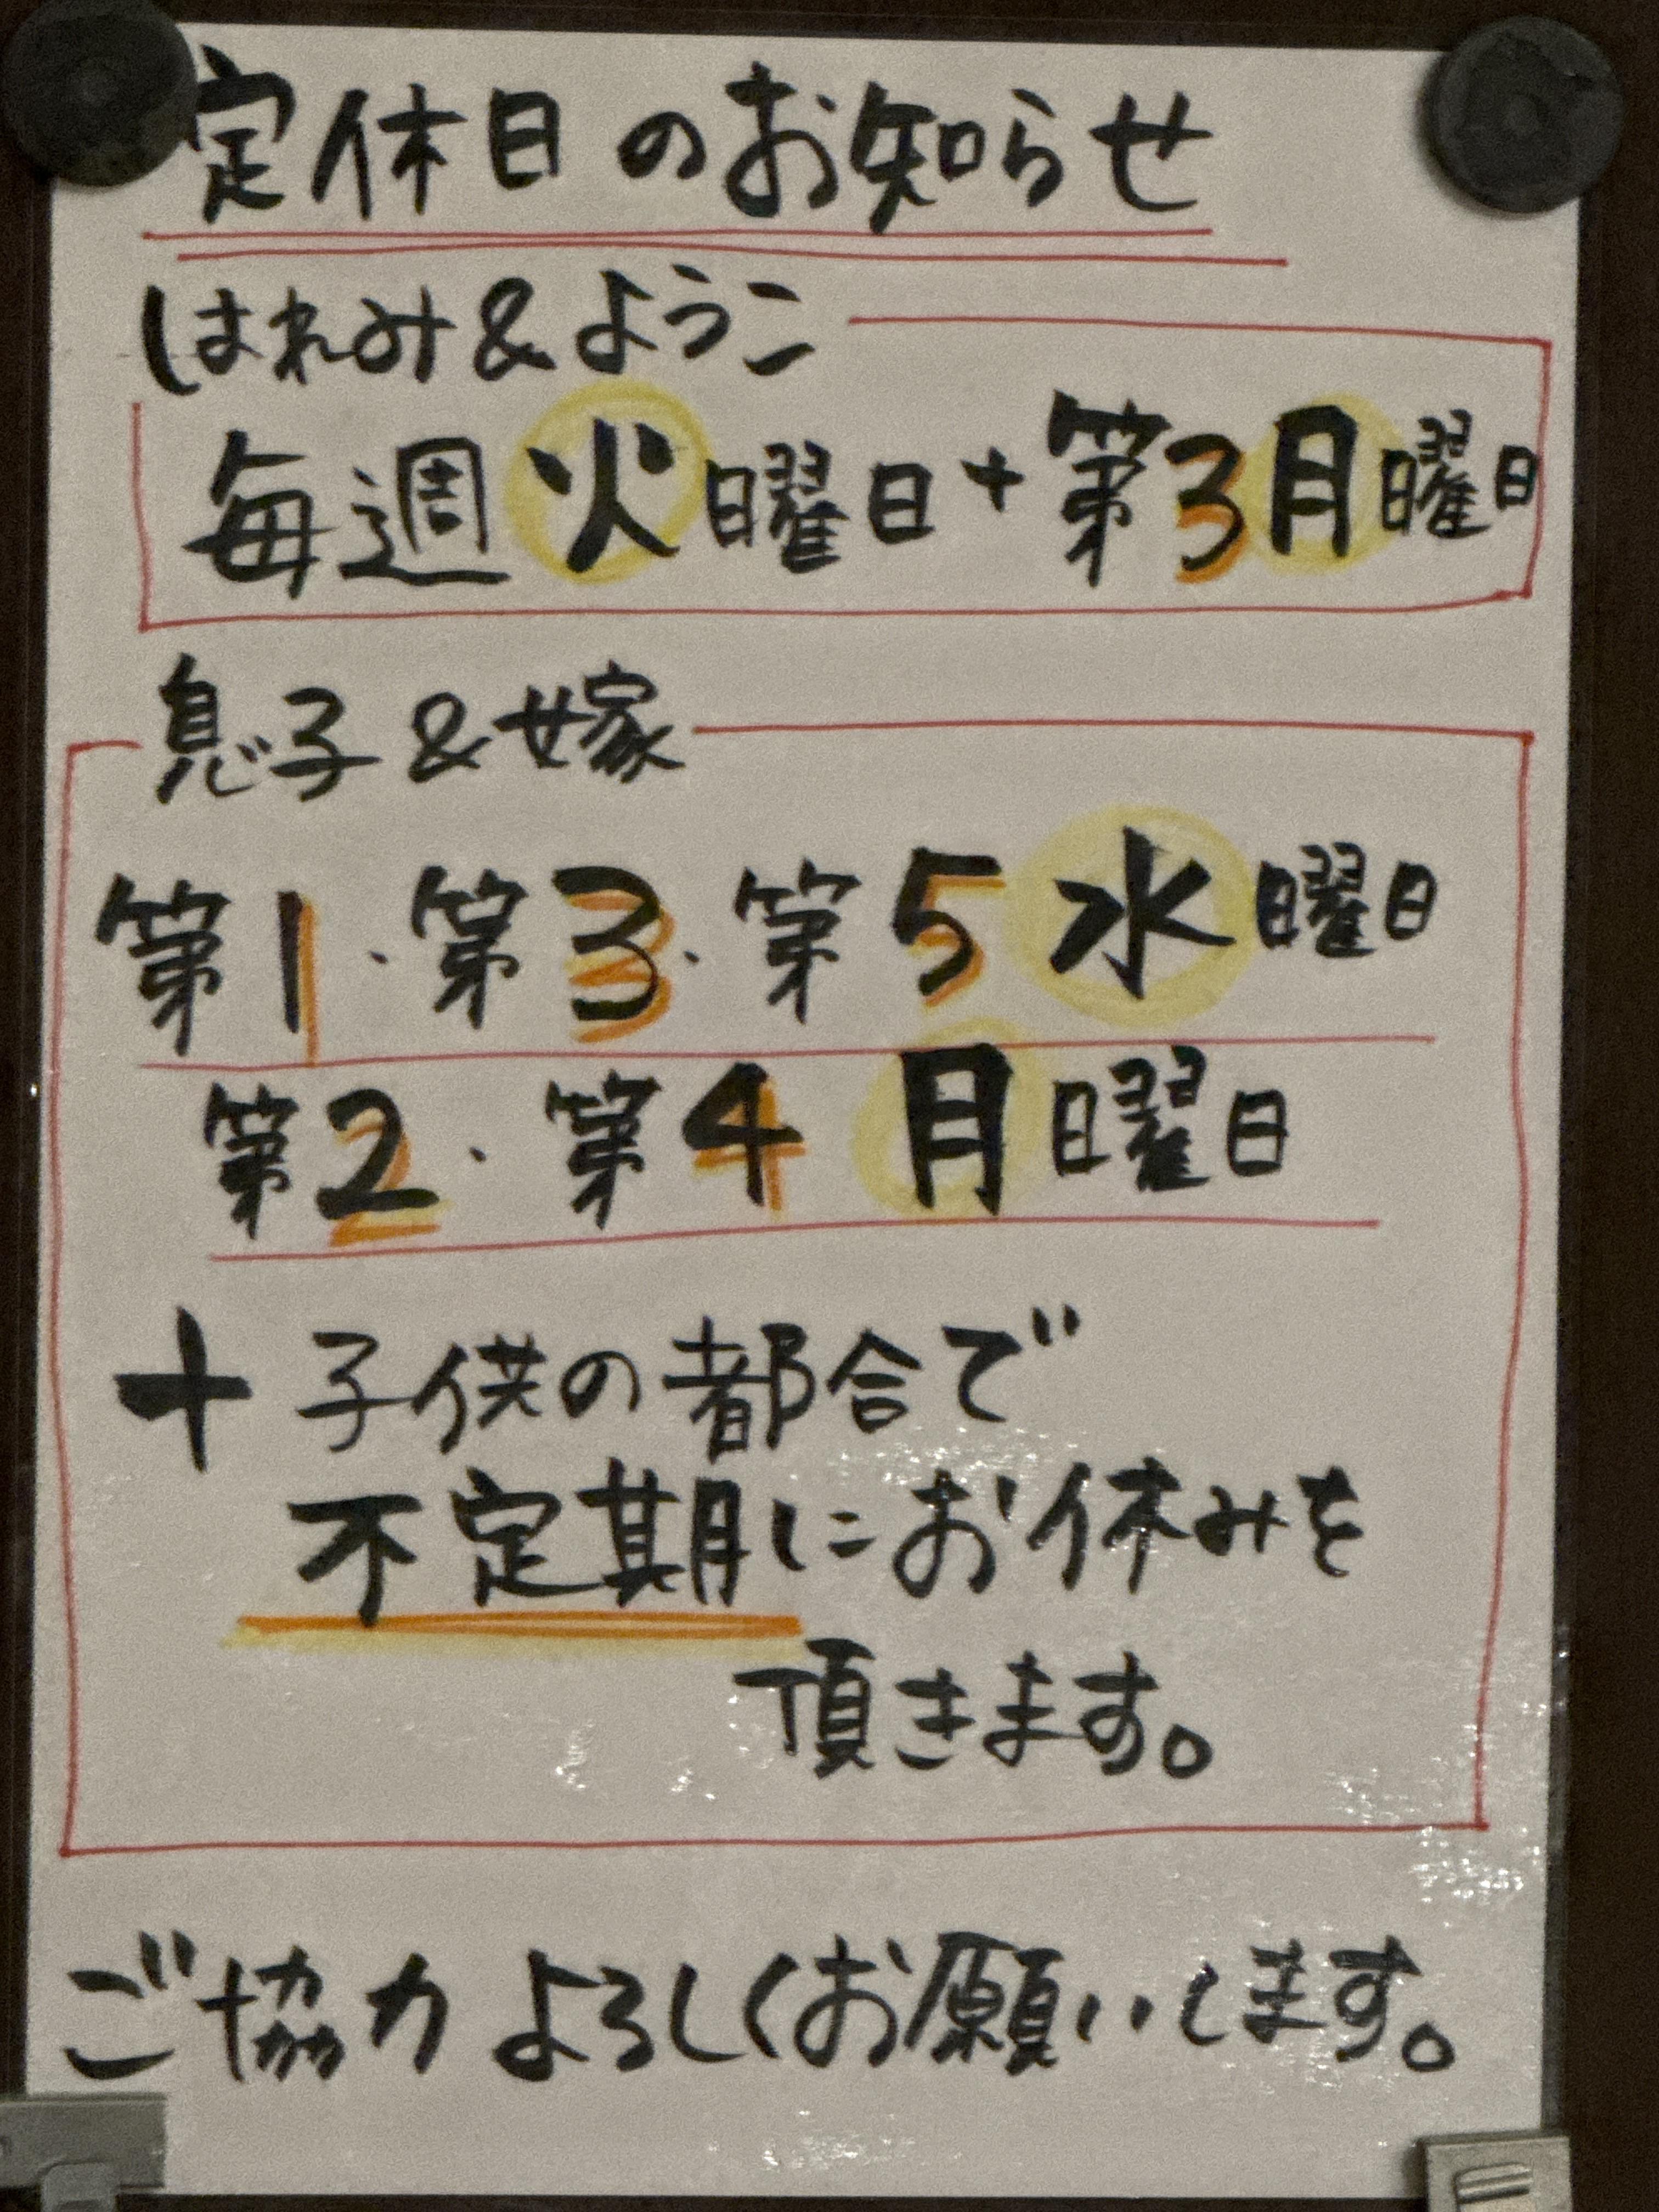 定休日のお知らせ
はれみ&ようこ
毎週火曜日+第3月曜日
息子&嫁
第1・第3・第5水曜日
第2・第4月曜日
+子供の都合で
不定期にお休みを
頂きます。
ご協力よろしくお願いします。